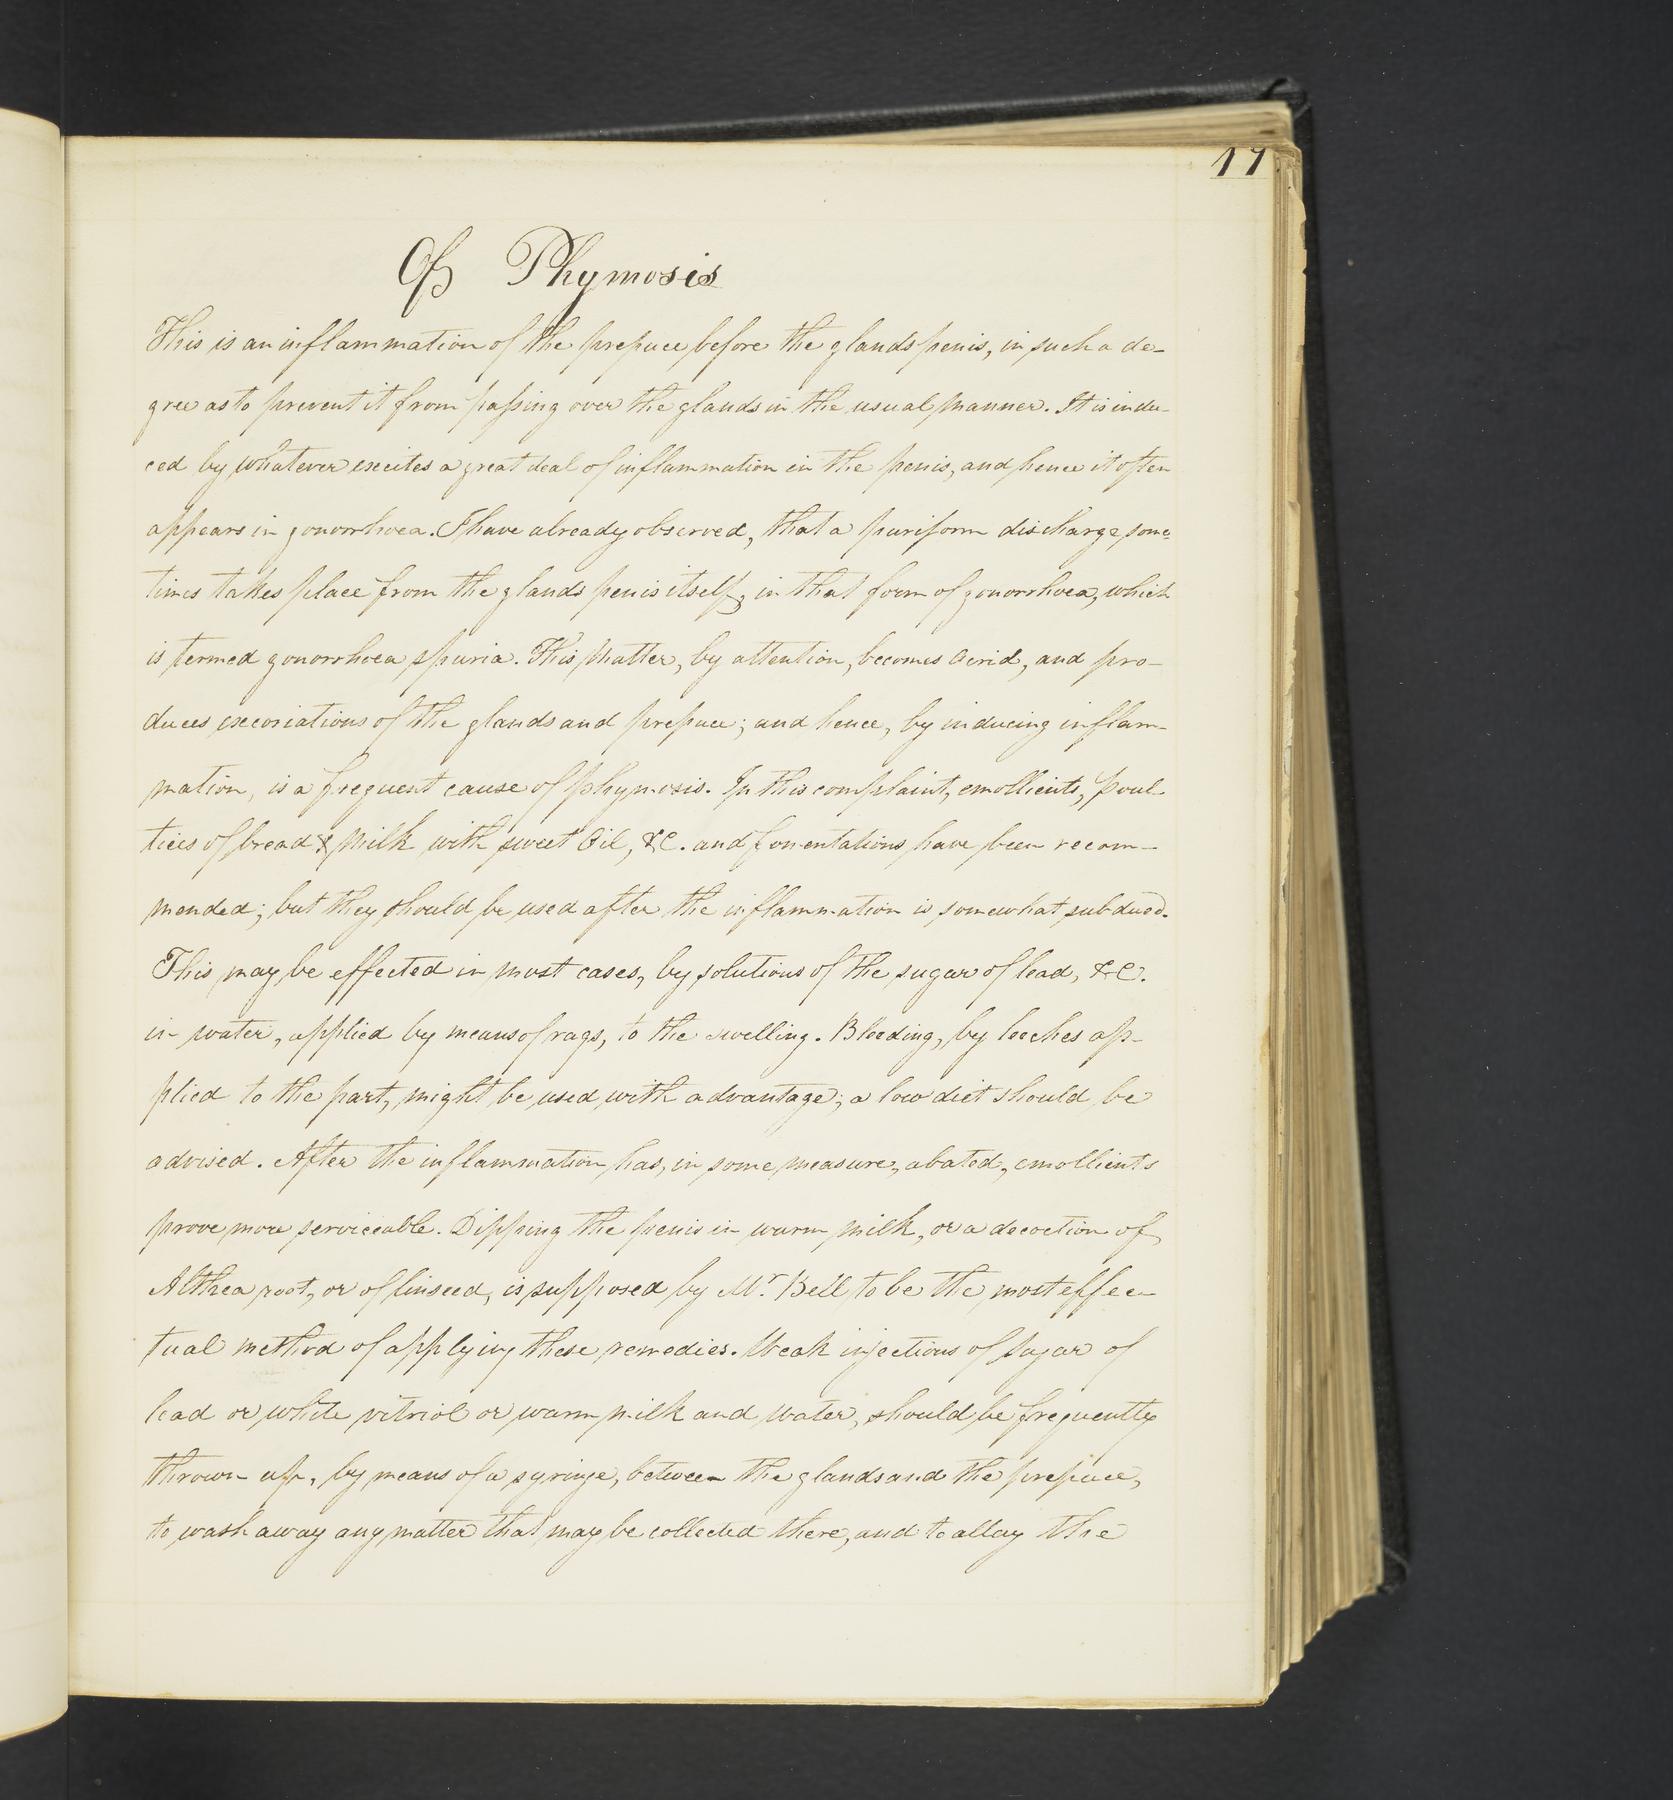 17
Of Phymosis
This is an inflammation of the prepuce before the glands penis, in such a de-
gree as to prevent it from passing over the glands in the usual manner. It is indu-
ced by whatever excites a great deal of inflammation in the penis, and hence it often
appears in gonorrhoea. I have already observed, that a puriform discharge some=
times takes place from the glands penis itself, in that form of gonorrhoea, which
is termed gonorrhoea spuria. This Matter, by attention, becomes acrid, and pro-
duces excoriations of the glands and prepuce; and hence, by inducing inflam-
mation, is a frequent cause of phymosis. In this complaint, emollients, poul
tices of bread & Milk with sweet Oil, &C. and fomentations have been recom-
mended; but they should be used after the inflammation is somewhat subdued.
This may be effected in most cases, by solutions of the sugar of lead, &C.
in water, applied by means of rags, to the swelling. Bleeding, by leeches ap-
plied to the part, might be used with advantage; a low diet should be
advised. After the inflammation has, in some measure, abated, emollients
prove more serviceable. Dipping the penis in warm milk, or a decoction of
Althea root, or of linseed, is supposed by Mr. Bell to be the most effec-
tual method of applying these remedies. Weak injections of sugar of
lead or white vitriol or warm milk and Water, should be frequently
thrown up, by means of a syringe, between the glands and the prepuce,
to wash away any matter that may be collected there, and to allay the